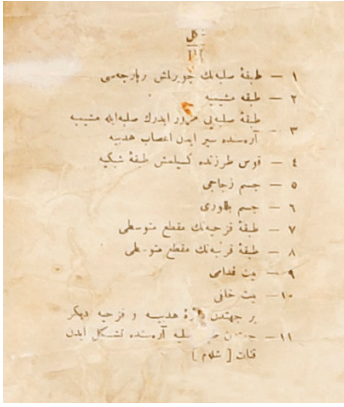 شكل
١ — طبقۀ صلبه‌نك چویرلمش بر پارچه‌سی
٢ — طبقه مشیمیه
طبقۀ صلبه‌یی مرور ایدرك صلبه ایله مشیمیه
٣ — آره‌سنده سیر ایدن اعصاب هدبیه
٤ — قوس طرزنده كسیلمش طبقۀ شبكیه
٥ — جسم زجاجی
٦ — جسم بللوری
٧ — طبقۀ قزحیه‌نك مقطع متوسطی
٨ — طبقۀ قرنیه‌نك مقطع متوسطی
٩ — بیت قدامی
١٠ — بیت خلفی
بر جهتدن دائرۀ هدبیه و قزحیه دیكر
١١ — جهتدن صلبیه آره‌سنده تشكل ایدن
قنات [ شلام ]